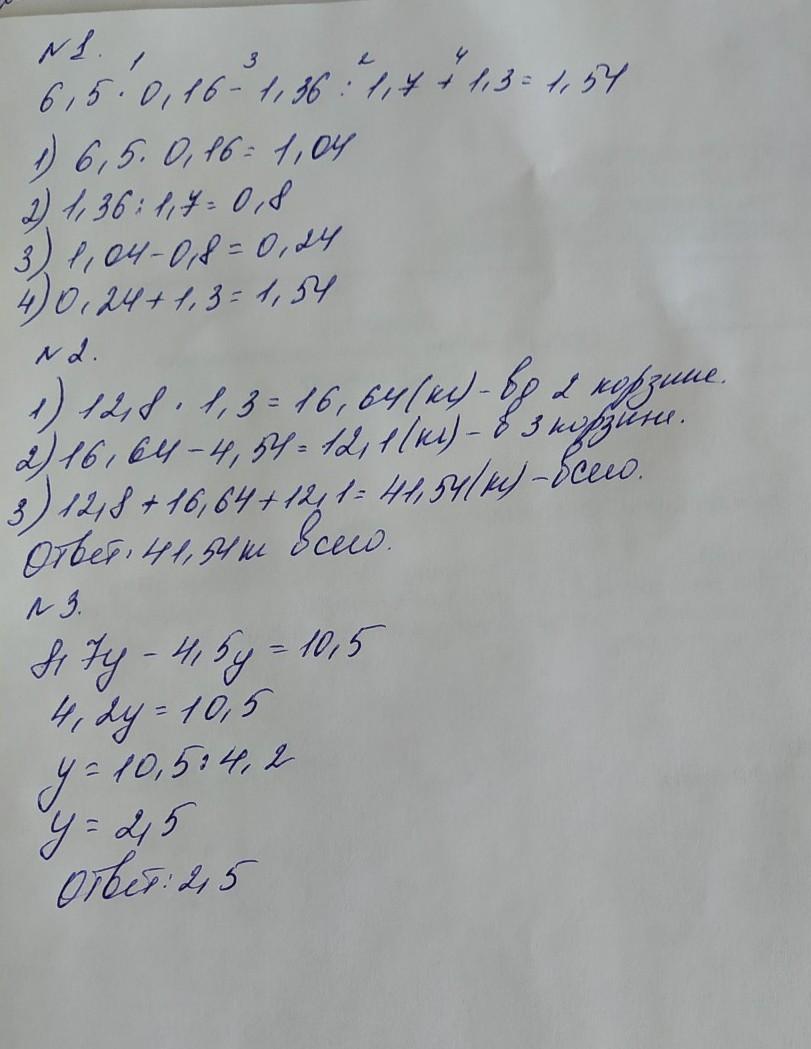 N 1.
1 3 2 4
6,5 · 0,16 - 1,36 : 1,7 + 1,3 = 1,54
1) 6,5 · 0,16 = 1,04
2) 1,36 : 1,7 = 0,8
3) 1,04 - 0,8 = 0,24
4) 0,24 + 1,3 = 1,54
N 2.
1) 12,8 · 1,3 = 16,64 (кг) - во 2 корзине.
2) 16,64 - 4,54 = 12,1 (кг) - в 3 корзине.
3) 12,8 + 16,64 + 12,1 = 41,54 (кг) - всего.
Ответ: 41,54 кг всего.
N 3.
8,7y - 4,5y = 10,5
4,2y = 10,5
y = 10,5 : 4,2
y = 2,5
Ответ: 2,5